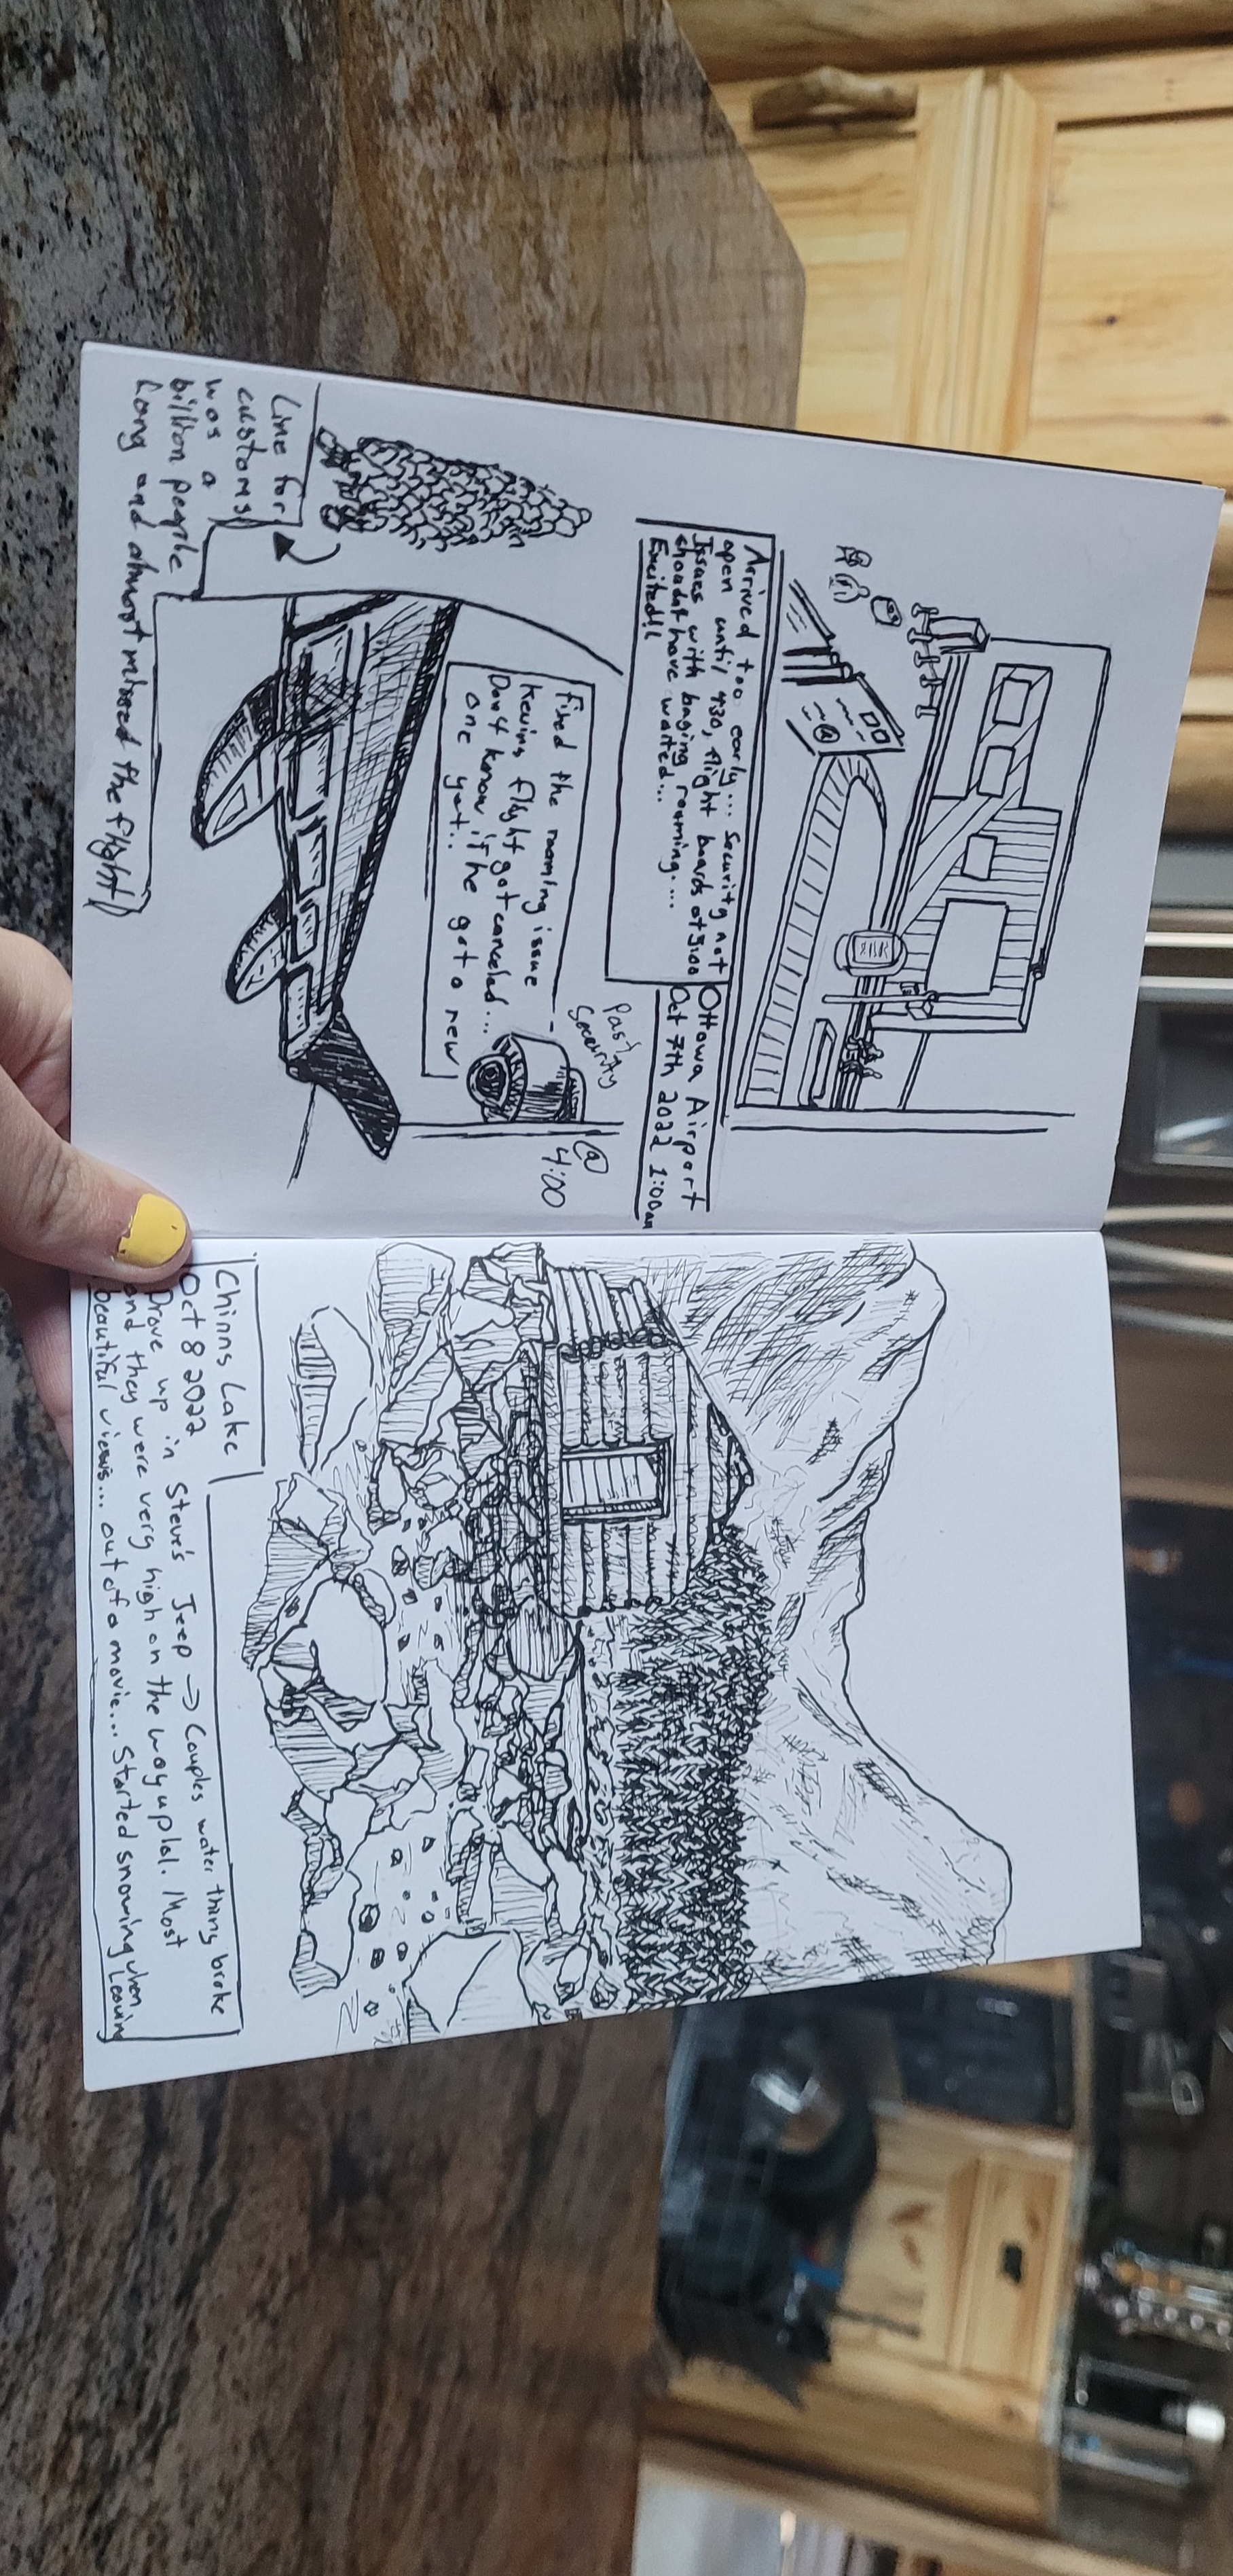 Arrived too early... Security not
open until 430, flight boards at 5:00
Issues with baging roaming....
shouldn't have waited...
Excited!!
Ottawa Airport
Oct 7th 2022 1:00am
Past
Security
@
4:00
fixed the roaming issue
Kevins flight got canceled...
Don't know if he got a new
one yet..
Line for
customs
was a
billion people
long and almost missed the flight
Chinns Lake
Oct 8 2022
Drove up in Steve's Jeep → Couples water thing broke
and they were very high on the way up lol. Most
beautiful views... out of a movie... Started snowing when leaving